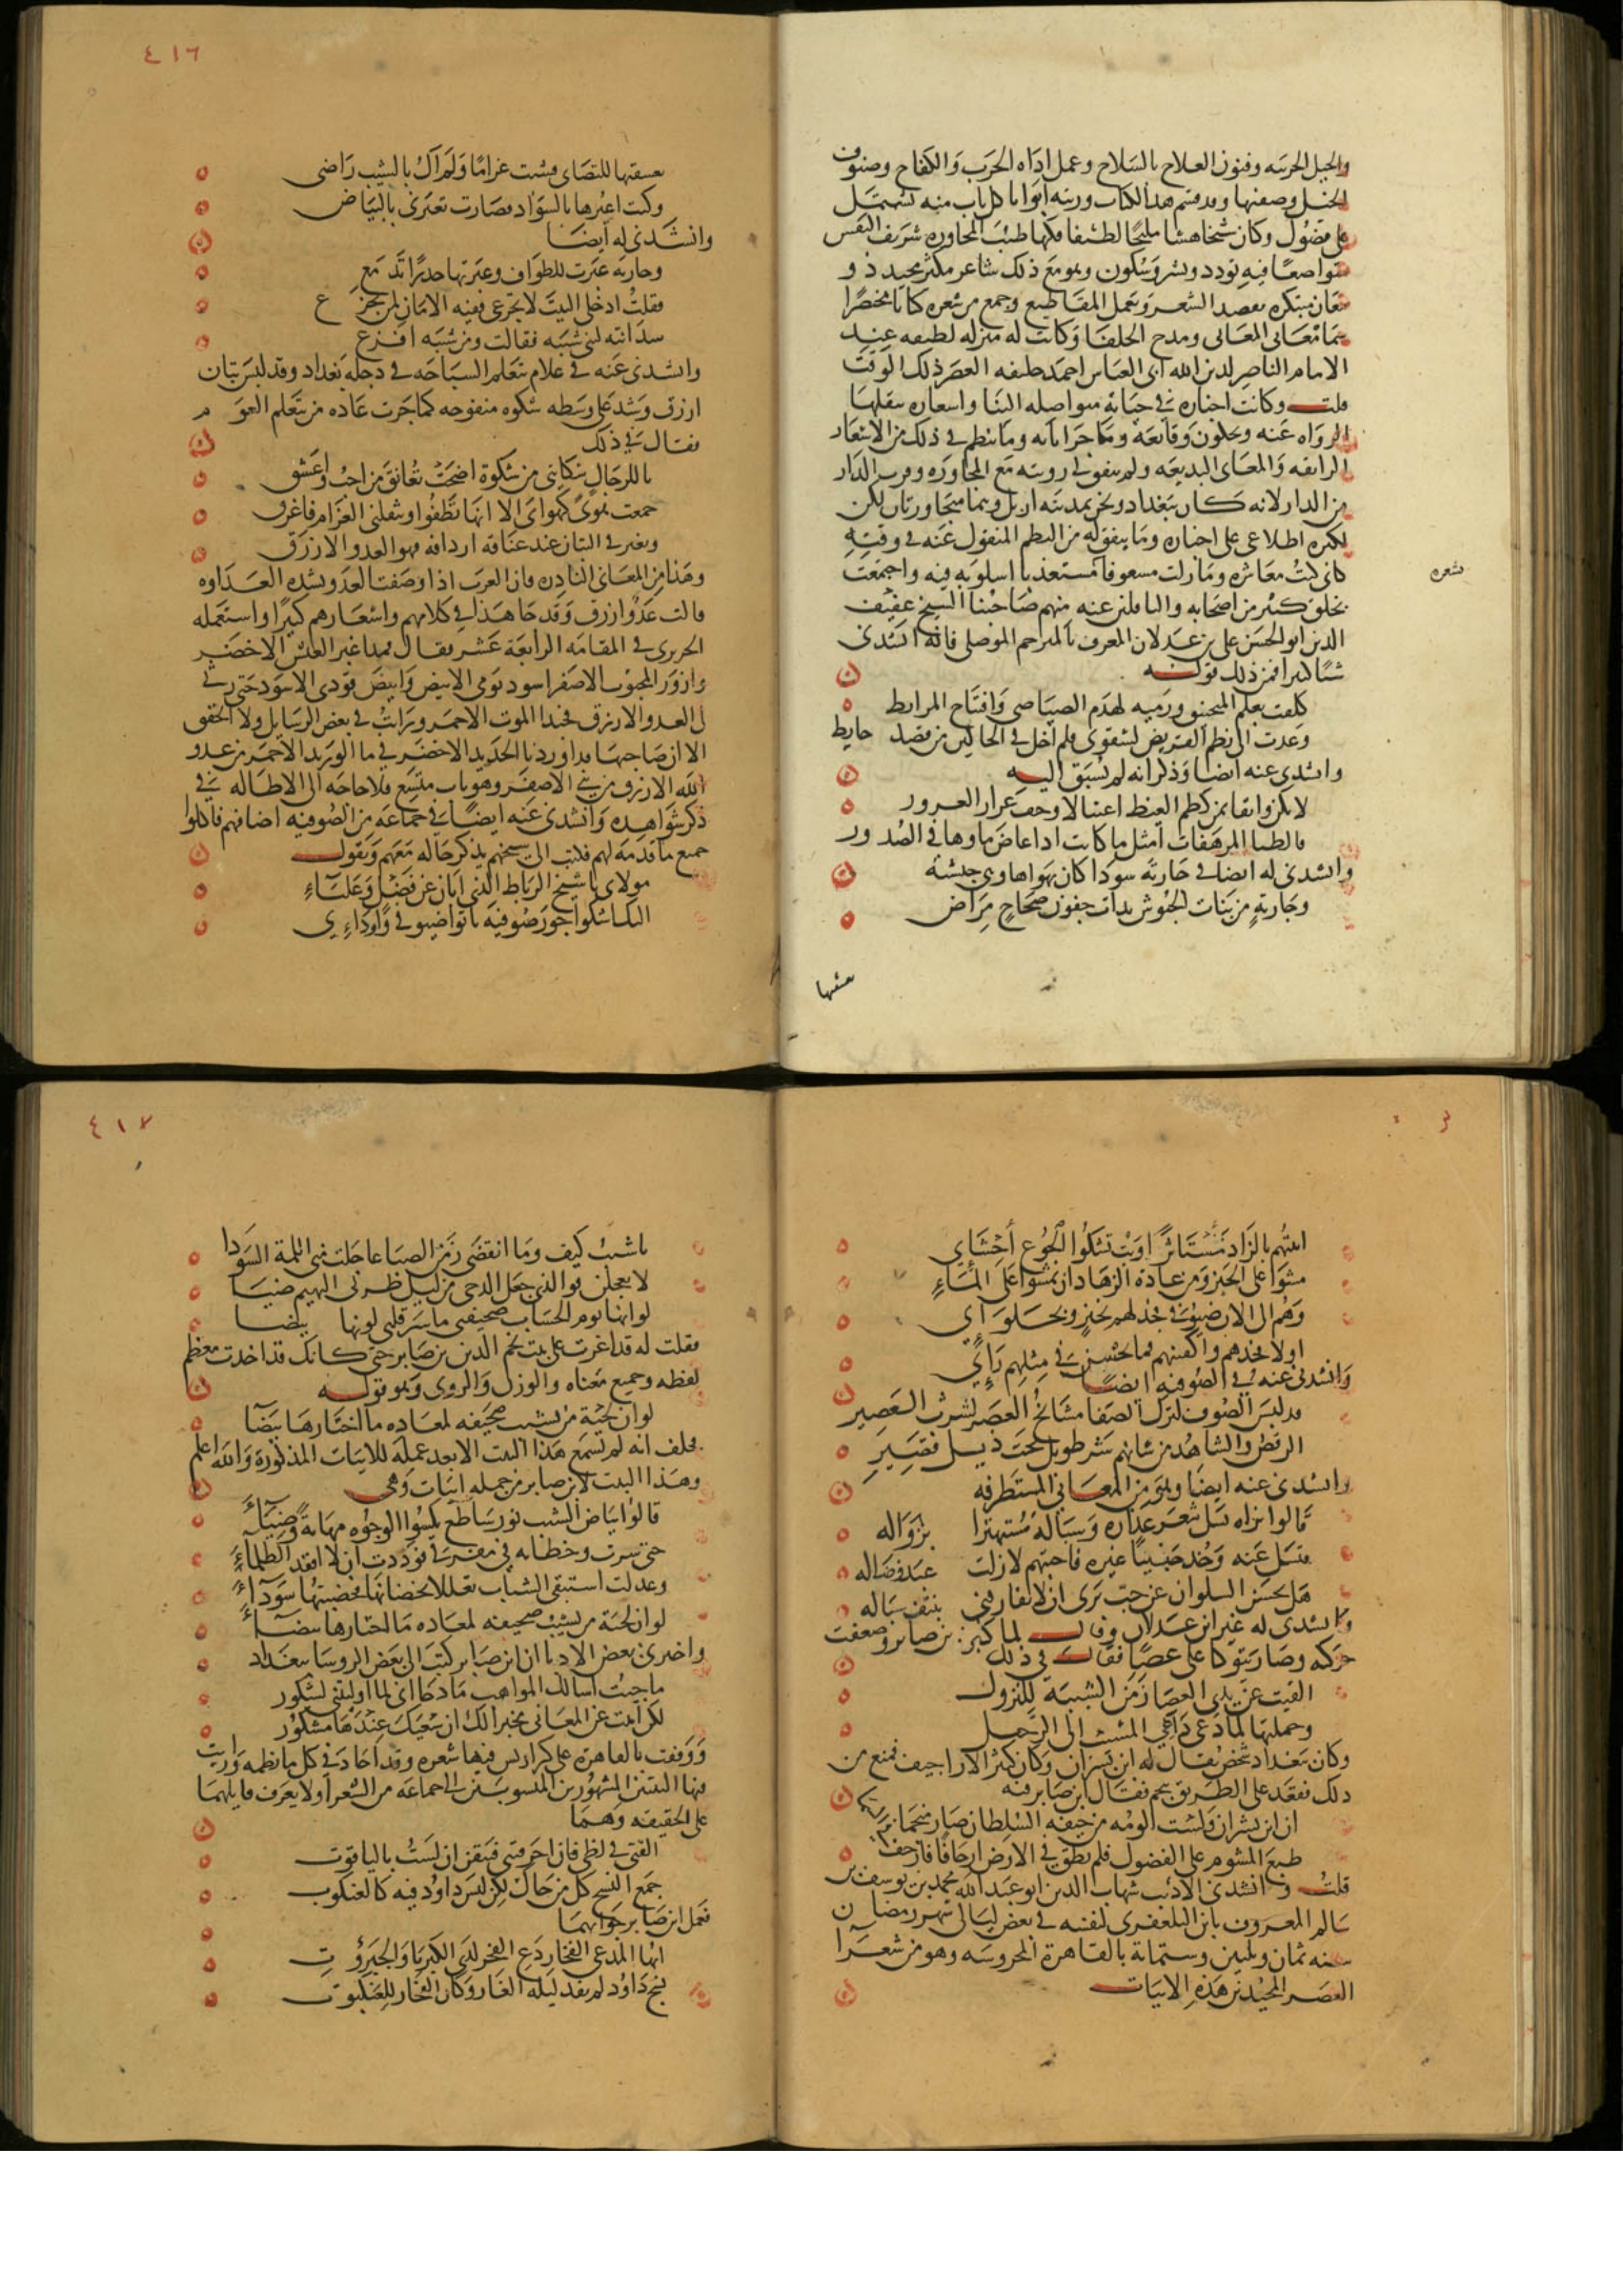 والحيل الحربيه وفنون العلاج بالسلاح وعمل اداه الحرب والكفاح وصنوف
الخيل وصفتها وقد قسم هذا الكتاب ورتبه ابوابا كل باب منه يشتمل
على فصول وكان شيخا هشا مليحا لطيفا فكها طيب المحاوره شريف النفس
متواضعا فيه تودد وبشر وسكون وهو مع ذلك شاعر مكثر مجيد ذو
معان مبتكره يقصد الشعر ويعمل المقاطيع وجمع من شعره كتابا مختصرا
سماه مغاني المعاني ومدح الخلفا وكانت له منزله لطيفه عند
الامام الناصر لدين الله ابي العباس احمد خليفه العصر ذلك الوقت
قلت وكانت اخباره في حياته متواصله الينا واشعاره ينقلها
الرواه عنه ويحكون وقائعه وماجراياته وما ينظم في ذلك من الاشعار
الرائقه والمعاني البديعه ولم يتفق لي رويته مع المجاوره وقرب الدار
من الدار لانه كان ببغداد ونحن بمدينه اربل وهما متجاورتان لكن
لكثره اطلاعي على اخباره وما يتفق له من النظم المنقول عنه في وقته
كاني كنت معاشره وما زلت مشعوفا بشعره مستعذبا اسلوبه فيه واجتمعت
بخلق كثير من اصحابه والناقلين عنه منهم صاحبنا الشيخ عفيف
الدين ابو الحسن علي بن عدلان المعروف بالمترجم الموصلي فانه انشدني
شيا كثيرا فمن ذلك قوله
كلفت بعلم المنجنيق ورميه لهدم الصياصي وافتتاح المرابط
وعدت الى نظم القريض لشقوتي فلم اخل في الحالين من قصد حايط
وانشدني عنه ايضا وذكر انه لم يسبق اليه
لا تكن واثقا بمن كظم الغيظ اغتيالا وخف غرار الغرور
فالظبا المرهفات امثل ما كانت اذا غاض ماوها في الصدور
وانشدني له ايضا في جاريه سودا كان يهواها وهي حبشيه
وجارية من بنات الحبوش بذات جفون صحاح مراض
تعشقتها
٤١٦
تعشقتها للتصابي فشبت غراما ولم اك بالشيب راضي
وكنت اعيرها بالسواد فصارت تعيرني بالبياض
وانشدني له ايضا
وجاريه عبرت للطواف وعبرتها حذرا تدمع
فقلت ادخلي البيت لا تجزعي ففيه الامان لمن يجزع
سدانته لبني شيبه فقالت ومن شيبه افزع
وانشدني عنه في غلام يتعلم السباحه في دجله بغداد وقد لبس تبان
ازرق وشد على وسطه شكوه منفوخه كما جرت عاده من يتعلم العوم
فقال في ذلك
يا للرجال شكايتي من شكوة اضحت تعانق من احب واعشق
جمعت هوى كهواي الا انها تطفوا ويثقلني الغرام فاغرق
ويغيرني التبان عند عناقه اردافه فهو العدو الازرق
وهذا من المعاني النادره فان العرب اذا وصفت العدو بشده العداوه
قالت عدو ازرق وقد جا هذا في كلامهم واشعارهم كثيرا واستعمله
الحريري في المقامه الرابعة عشر فقال فمذ اغبر العيش الاخضر
وازور المحبوب الاصفر اسود يومي الابيض وابيض فودي الاسود حتى رثى
لي العدو الازرق فحبذا الموت الاحمر ورايت في بعض الرسايل ولا اتحقق
الان صاحبها بدا اوردنا الحديد الاخضر في ما الوريد الاحمر من عدو
الله الازرق من بني الاصفر وهو باب متسع فلا حاجه الى الاطاله في
ذكر شواهده وانشدني عنه ايضا في جماعه من الصوفيه اضافهم فاكلوا
جميع ما قدمه لهم فكتب الى شيخهم يذكر حاله معهم ويقول
مولاي يا شيخ الرباط الذي ابان عن فضل وعلياء
اليك اشكوا جور صوفية باتوا ضيوفي واودائي
اتيتهم بالزاد مستاثرا وبت تشكوا الجوع احشائي
مشوا على الخبز ومن عادة الزهاد ان يمشوا على الماء
وهم الى الان ضيوفي فخذ لهم بخبز وبحلوائي
اولا فخذهم واكفنيهم فما يحسن في مثلهم رائي
وانشدني عنه في الصوفيه ايضا
قد لبس الصوف لترك الصفا مشايخ العصر لشرب العصير
الرقص والشاهد من شانهم شر طويل تحت ذيل قصير
وانشدني عنه ايضا وهو من المعاني المستطرفه
قالوا نراه يسل شعر عذاره وسباله مستهترا بزواله
فتسل عنه وخذ حبيبا غيره فاجبتهم لا زلت عبد وصاله
هل يحسن السلوان عن حب يرى ان لا يفارقني بنتف سباله
وانشدني له غير ابن عدلان وقال لما كبر ابن صابر وضعفت
حركه وصار يتوكا على عصا فقال في ذلك
القيت عن يدي العصا زمن الشبيبه للنزول
وحملتها لما دعى داعي المشيب الى الرحيل
وكان ببغداد شخص يقال له ابن بشران وكان كثير الاراجيف فمنع من
ذلك فقعد على الطريق ينجم فقال ابن صابر فيه
ان ابن بشران ولست الومه من خيفه السلطان صار منجما
طبع المشوم على الفضول فلم يطق في الارض ارجافا فارجف
قلت وانشدني الاديب شهاب الدين ابو عبد الله محمد بن يوسف بن
سالم المعروف بابن التلعفري لنفسه في بعض ليالي شهر رمضان
سنه ثمان وثلثين وستماية بالقاهرة المحروسه وهو من شعرا
العصر المجيدين هذه الابيات
٤١٧
يا شيب كيف وما انقضى زمن الصبا عاجلت مني اللمة السودا
لا تعجلن فوالذي جعل الدجى من ليل طرتي البهيم ضيا
لو انها يوم الحساب صحيفتي ما سر قلبي لونها بيضا
فقلت له قد اغرت على بيت نجم الدين بن صابر حتى كانك قد اخذت معظم
لفظه وجميع معناه والوزن والروي وهو قوله
لو ان لحية من يشيب صحيفه لمعاده ما اختارها بيضا
فحلف انه لم يسمع هذا البيت الا بعد عمله للابيات المذكورة والله اعلم
وهذا البيت لابن صابر من جمله ابيات وهي
قالوا بياض الشيب نور ساطع يكسوا الوجوه مهابة وضياء
حتى سرت وخطاته في مفرقي فوددت ان لا افقد الظلماء
وعدلت استبقي الشباب تعللا بخضابها فخضبتها سوداء
لو ان لحية من يشيب صحيفه لمعاده ما اختارها بيضاء
واخبرني بعض الادبا ان ابن صابر كتب الى بعض الروسا ببغداد
ما جيت اسالك المواهب مادحا اني لما اوليتني لشكور
لكن اتيت عن المعاني مخبرا لك ان سعيك عندها مشكور
ووقفت بالقاهرة على كراريس فيها شعره وقد اجاد في كل ما نظمه ورايت
فيها البيتين المشهورين المنسوبين الى جماعه من الشعرا ولا يعرف قايلهما
على الحقيقه وهما
القني في لظى فان احرقتني فتيقن ان لست بالياقوت
جمع النسج كل من حاك لكن ليس داود فيه كالعنكبوت
فعمل ابن صابر جوابهما
ايها المدعي الفخار دع الفخر لذي الكبريا والجبروت
نسج داود لم يفد ليله الغار وكان الفخار للعنكبوت